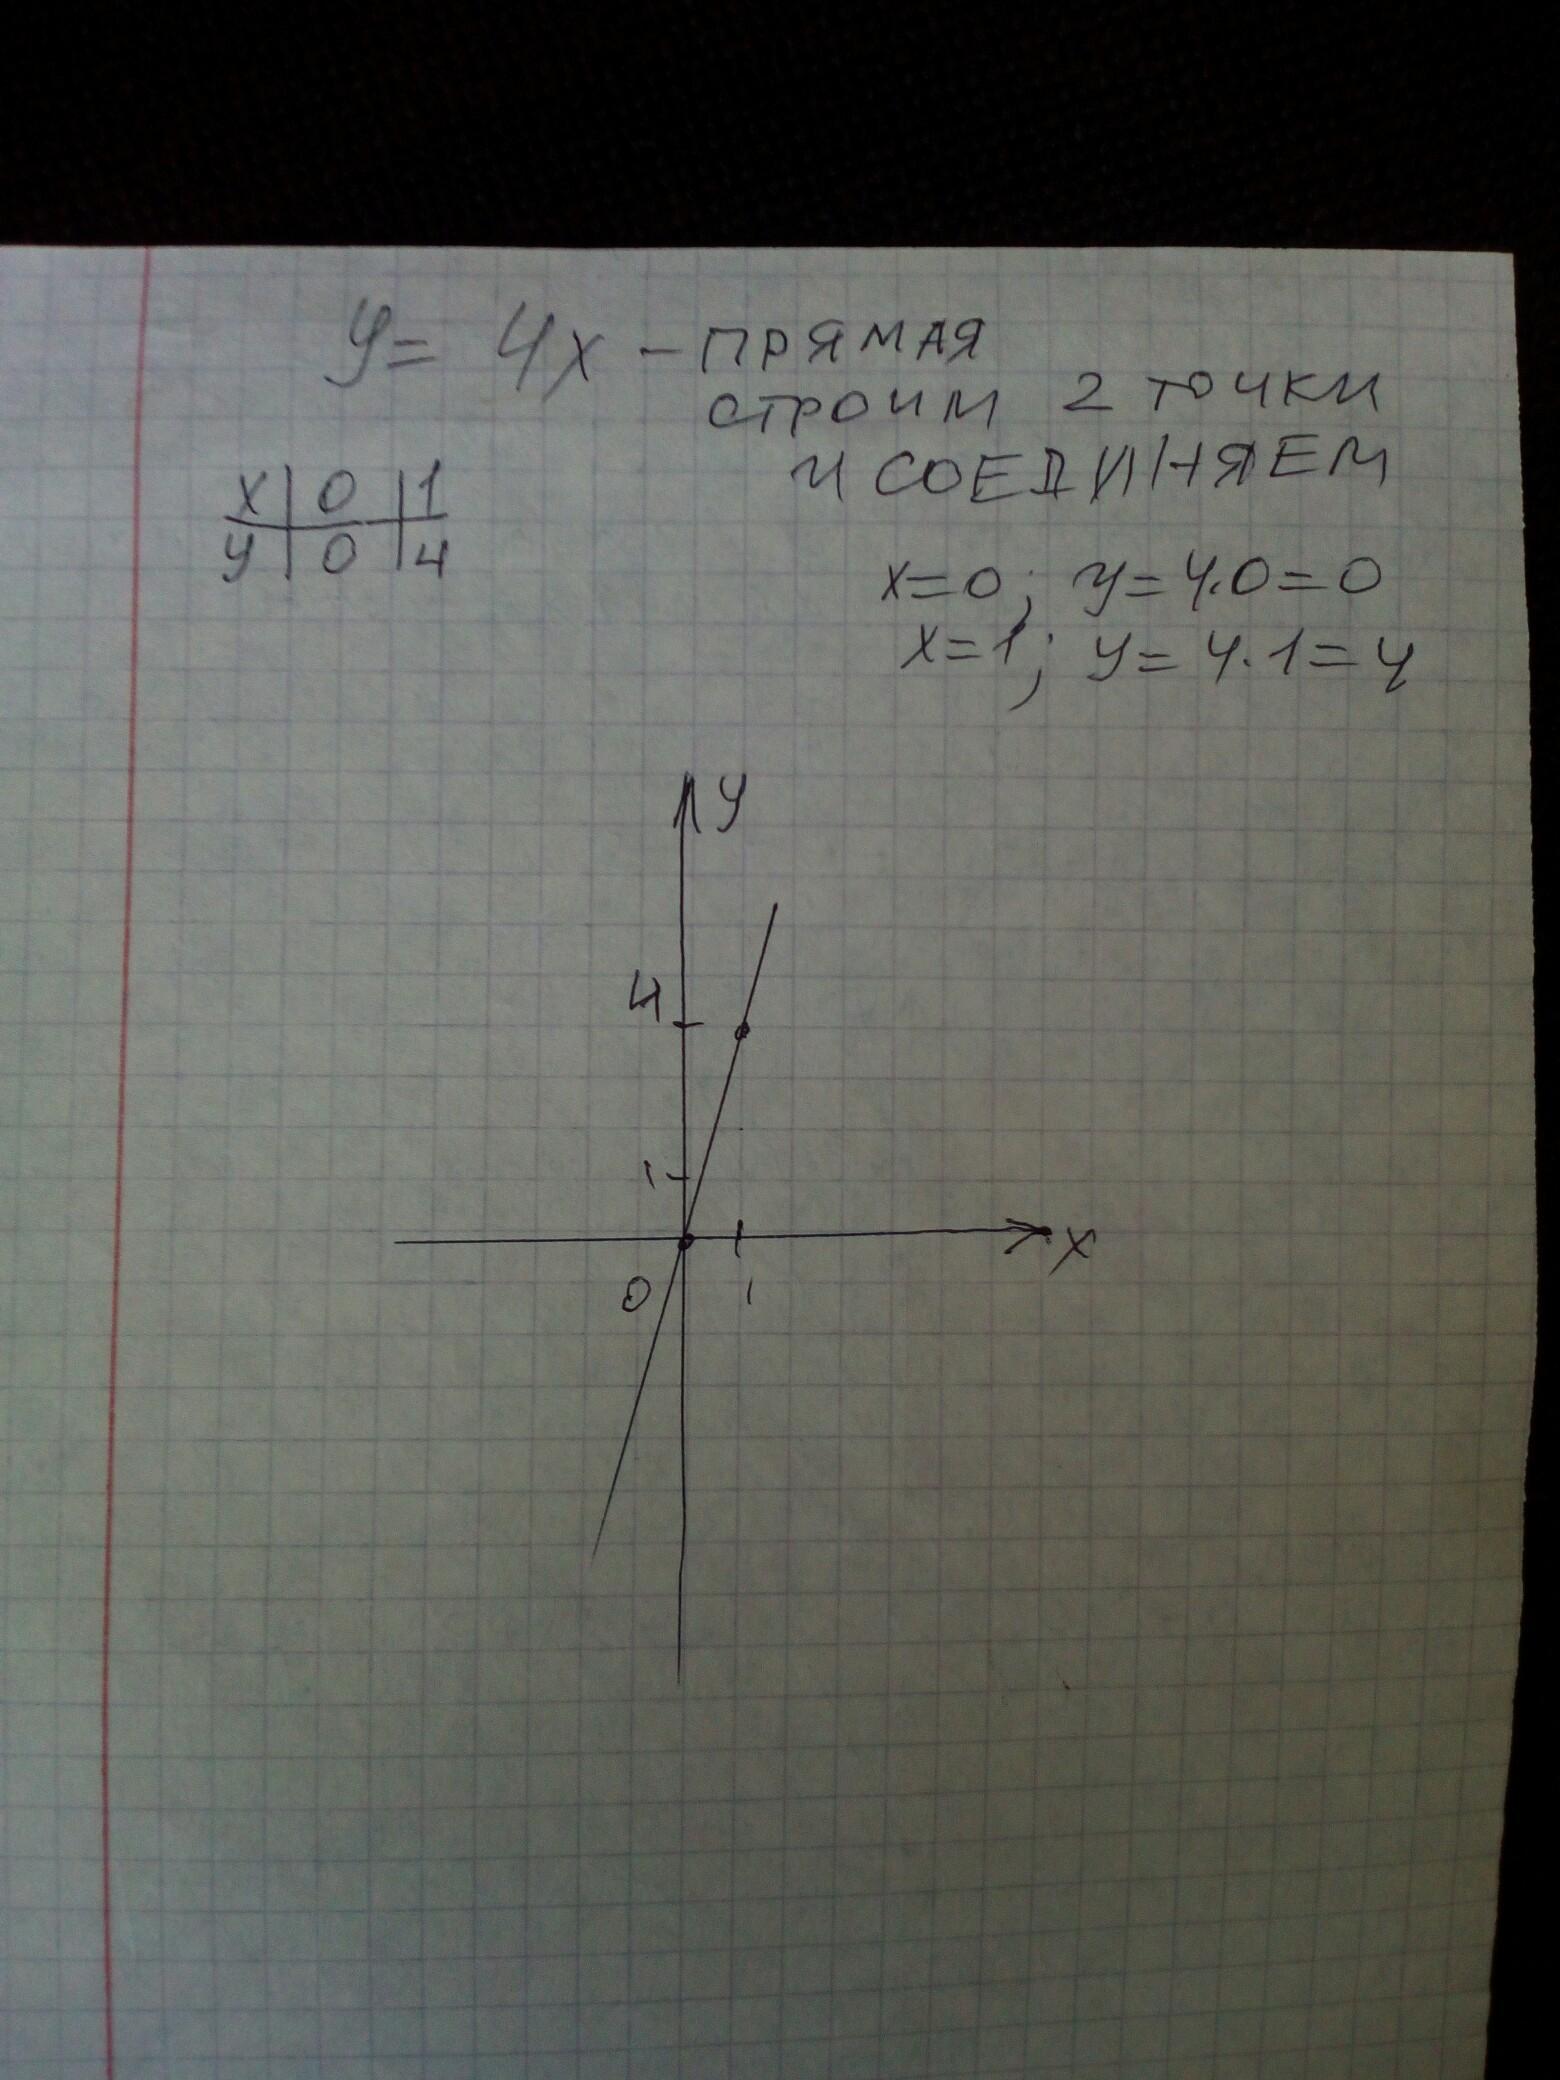 y = 4x – прямая
строим 2 точки
и соединяем
x | 0 | 1
y | 0 | 4
x=0; y=4·0=0
x=1; y=4·1=4
y
4
1
0 1 x